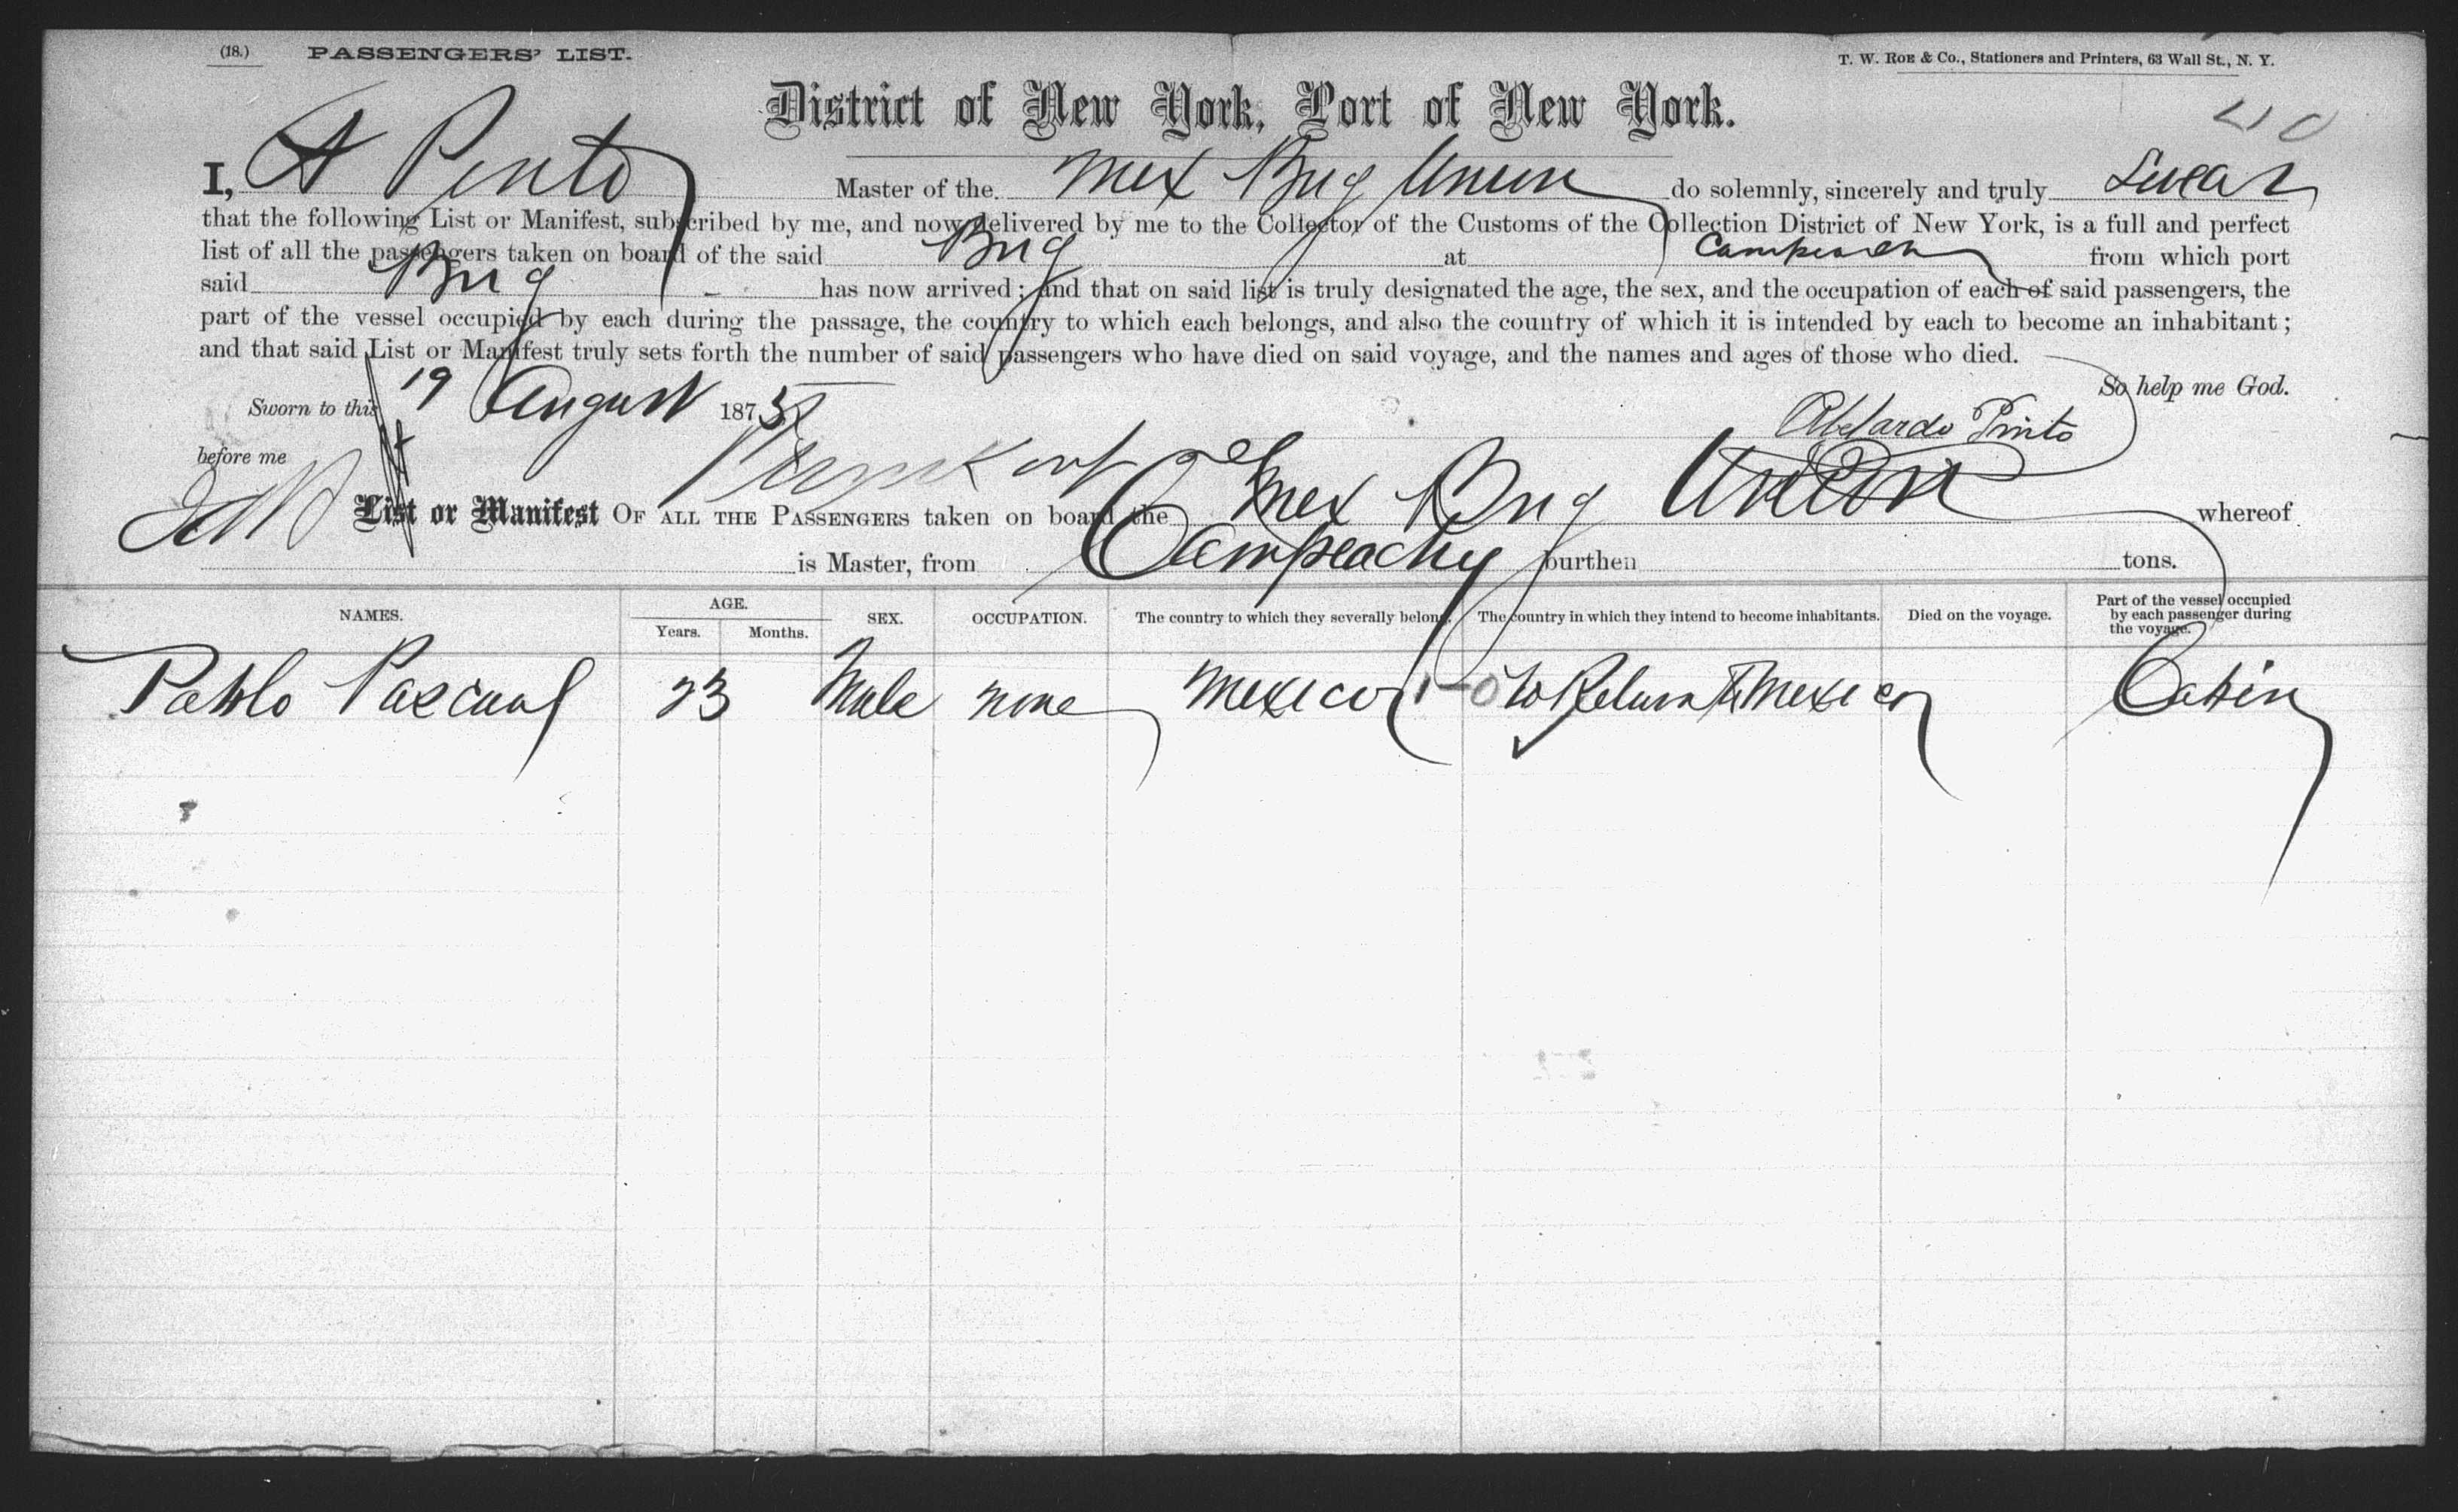 (18.) PASSENGERS' LIST. T. W. ROE & Co., Stationers and Printers, 63 Wall St., N. Y.
District of New York, Port of New York.
I, A Pinto Master of the Mex Brig Union do solemnly, sincerely and truly Swear
that the following List or Manifest, subscribed by me, and now delivered by me to the Collector of the Customs of the Collection District of New York, is a full and perfect
list of all the passengers taken on board of the said Brig at Campeach from which port
said Brig has now arrived; and that on said list is truly designated the age, the sex, and the occupation of each of said passengers, the
part of the vessel occupied by each during the passage, the country to which each belongs, and also the country of which it is intended by each to become an inhabitant;
and that said List or Manifest truly sets forth the number of said passengers who have died on said voyage, and the names and ages of those who died.
So help me God.
Sworn to this 19 August 1875
Abelardo Pinto
before me
List or Manifest OF ALL THE PASSENGERS taken on board the Mex Brig Union whereof
is Master, from Campeachy burthen tons.
NAMES. AGE. Years. Months. SEX. OCCUPATION. The country to which they severally belong. The country in which they intend to become inhabitants. Died on the voyage. Part of the vessel occupied by each passenger during the voyage.
Pablo Pascual 23 Male none Mexico 1-0 to Return to Mexico Cabin